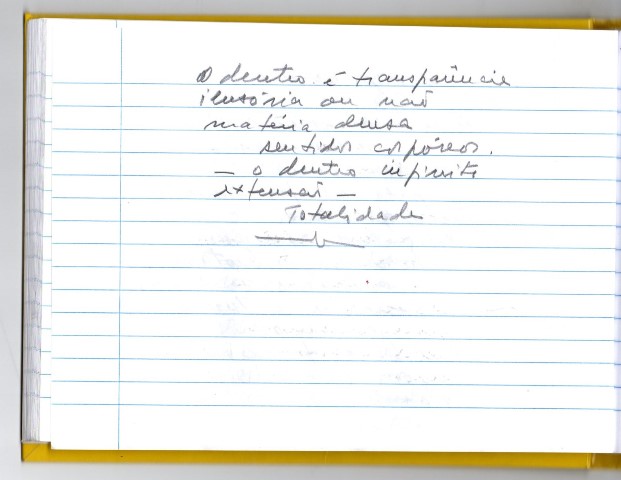 O dentro é transparência
ilusória ou não
matéria densa
sentidos corpóreos.
— o dentro infinita
extensão —
Totalidade